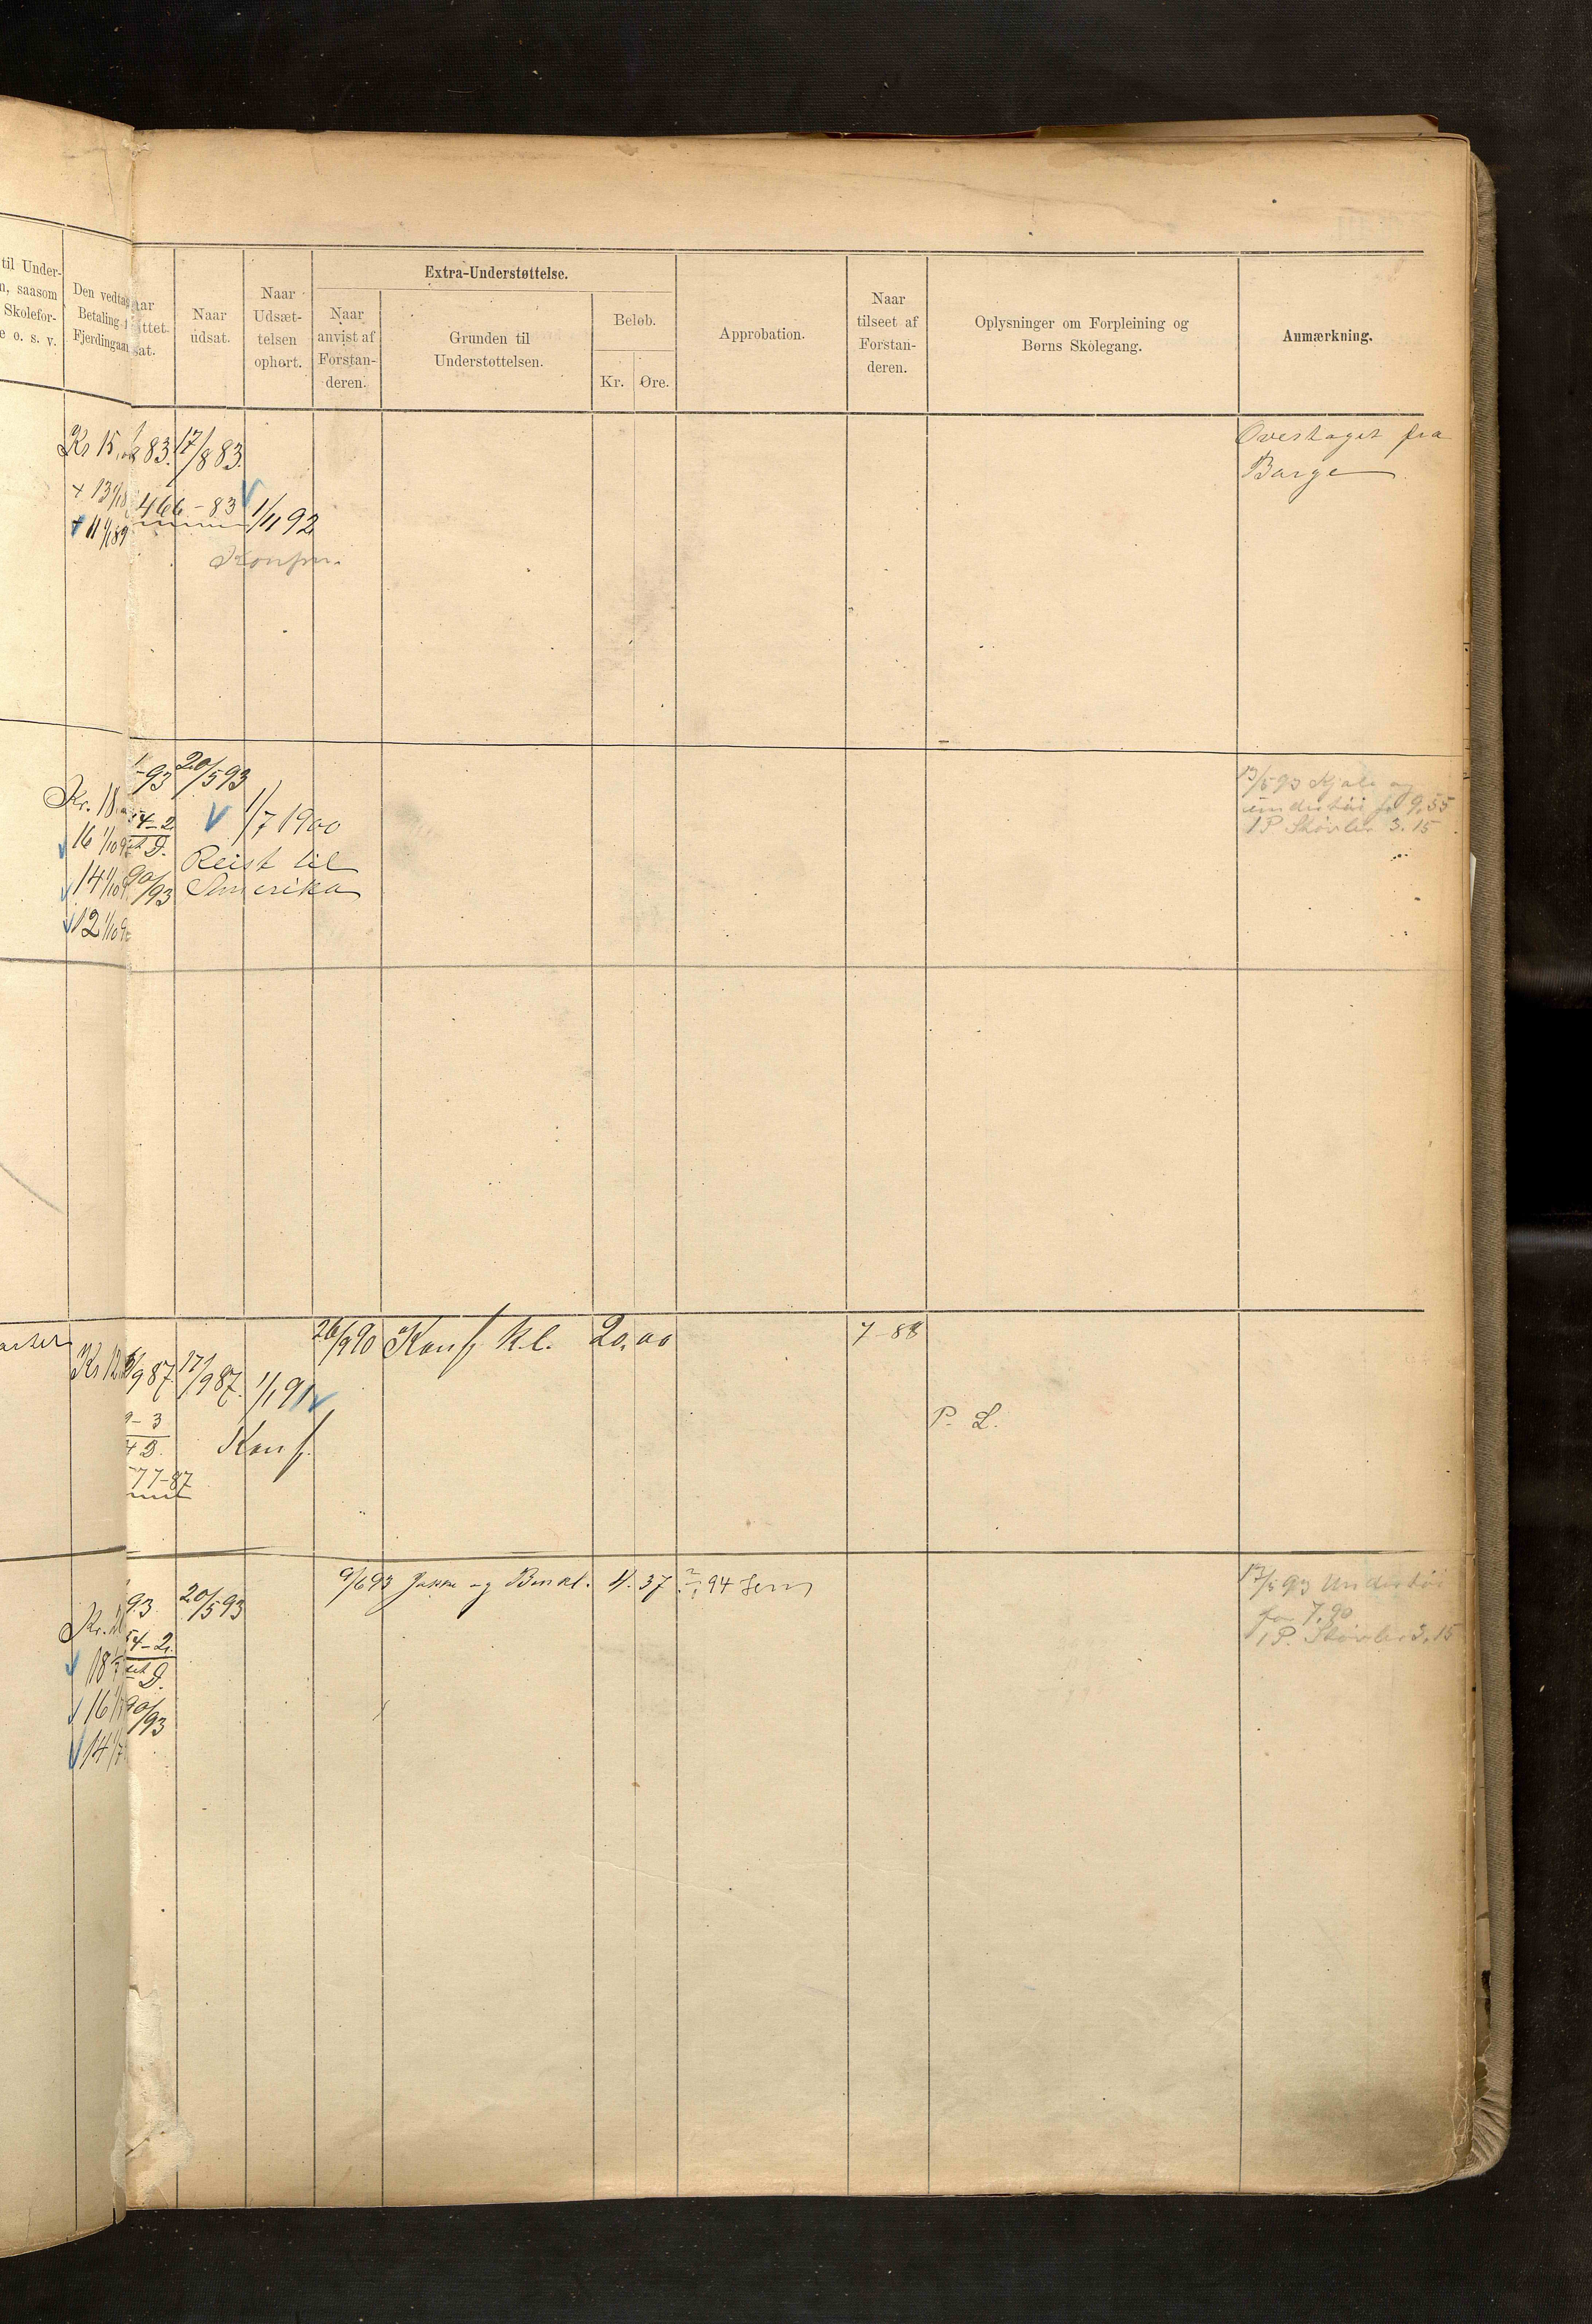 til Under-
saasom
Skolefor-
e o. s. v.
Den vedtag
Betaling
Fjerdingaar
aar
ittet
sat.
Naar
udsat.
Naar
Udsæt-
telsen
ophørt.
Extra-Understøttelse.
Naar
anvist af
Forstan-
deren.
Grunden til
Understøttelsen.
Beløb.
Kr. Øre.
Approbation.
Naar
tilseet af
Forstan-
deren.
Oplysninger om Forpleining og
Børns Skolegang.
Anmærkning.
Kr 15
83. 17/8 83.
+ 13
+ 11 1/1 89
466-83
1/11 92
Konfm.
Overtaget fra
Barge
Kr. 18
93 20/5 93
54-2
16 1/10
14 1/10
12 1/10
90/93
1/7 1900
Reist til
Amerika
13/5 93 Kjole og
undertøi for 9,55
1 P Støvler 3.15
Kr 12
9 87. 17/9 87. 1/1 91
9-3
4 D.
77-87
Konf.
26/9 90 Konf. kl. 20,00
7-88
P. L.
Kr.
93 20/5 93
54-2.
D.
90/93
18
16
14
9/6 93 Jakke og Benkl. 4.37
94
13/5 93 Undertøi
for 7,90
1 P. Støvler 3,15